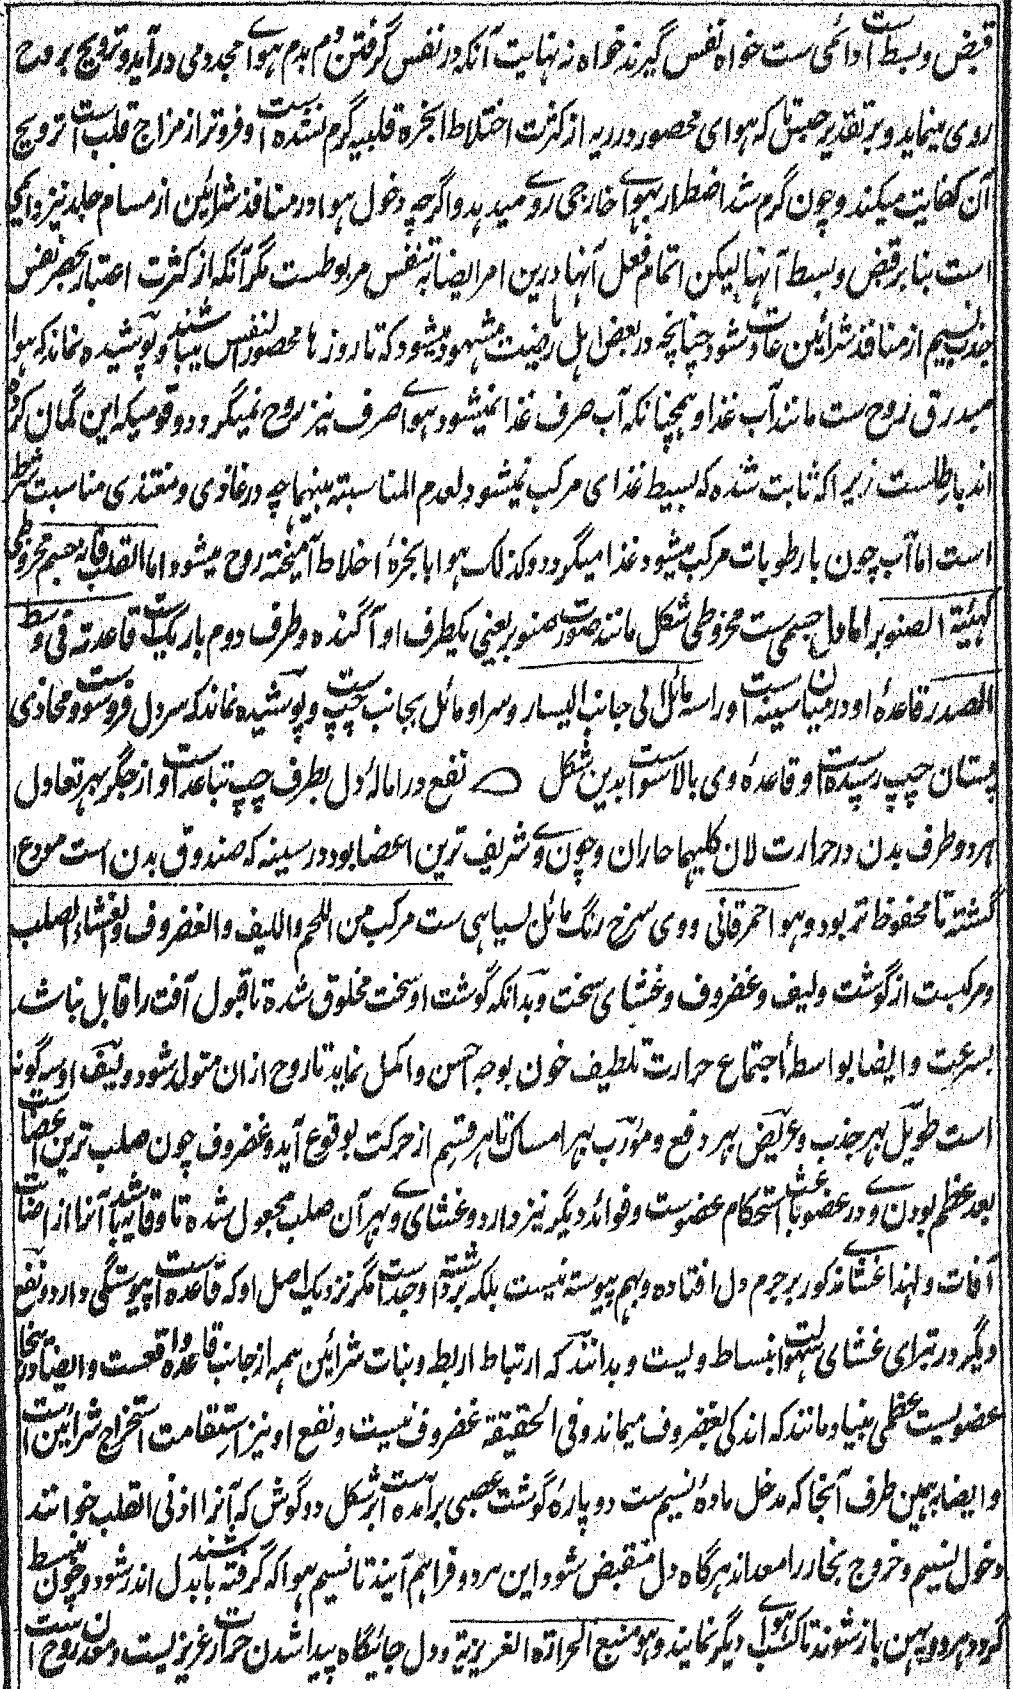 قبض و بسط او دائمی ست خواه نفس گیرند خواه نه نهایت آنکه در نفس گرفتن دم بدم هوای مجدد می درآید و ترویح بروح
روی مینماید و بر تقدیر حبس تا که هوای محصور در ریه از کثرت اختلاط ابخره قلبیه گرم نشده است و فروتر از مزاج قلب است ترویح
آن کفایت میکند و چون گرم شد اضطرار بهوای خارجی روی میدهد و اگرچه دخول هوا در منافذ شرائین از مسام جلد نیز دائمی
است بنابر قبض و بسط آنها لیکن اتمام فعل آنها درین امر ایضا به تنفس مربوطست مگر آنکه از کثرت اعتبار بحصر نفس
جذب نسیم از منافذ شرائین عادت شود چنانچه در بعض اهل ریاضت مشهود میشود که تا روزها محصور النفس میباشند و پوشیده نماند که هوا
مبدرق روح ست مانند آب غذا و همچنانکه آب صرف غذا نمیشود هوای صرف نیز روح نمیگردد و قومیکه این گمان کرده
اند باطلست زیراکه ثابت شده که بسیط غذای مرکب نمیشود لعدم المناسبة بینهما چه در غاذی و مغتذی مناسبت شرط
است اما آب چون با رطوبات مرکب میشود غذا میگردد و کذلک هوا با بخرهٔ اخلاط آمیخته روح میشود اما القلب فانه جسم مخروطی
کهیئة الصنوبر اما دل جسمی ست مخروطی شکل مانند صورت صنوبر یعنی یکطرف او آگنده و طرف دوم باریک ست قاعدته فی وسط
الصدر قاعدهٔ او در میان سینه است و راسه مائل الی جانب الیسار و سر او مائل بجانب چپ ست و پوشیده نماند که سر دل فروست و محاذی
پستان چپ رسیده است و قاعده وی بالا سوست بدین شکل نفع در امالهٔ دل بطرف چپ تباعد اوست از جگر بهر تعادل
هر دو طرف بدن در حرارت لان کلیهما حاران و چون وی شریف ترین اعضا بود در سینه که صندوق بدن است مودع
گشته تا محفوظ تر بود و هو احمر قانی و وی سرخ رنگ مائل بسیاهی ست مرکب من اللحم واللیف والغضروف والغشاء الصلب
و مرکبست از گوشت و لیف و غضروف و غشای سخت و بدانکه گوشت او سخت مخلوق شده تا قبول آفت را قابل نباشد
بسرعت و ایضا بواسطهٔ اجتماع حرارت تلطیف خون بوجه احسن و اکمل نماید تا روح ازان متولد شود و لیف او سه گونه
است طویل بهر جذب و عریض بهر دفع و مورب بهر امساک تا هر قسم از حرکت بوقوع آید و غضروف چون صلب ترین اعضاست
بعد عظم بودن وی در عضو باعث استحکام عضوست و فوائد دیگر نیز دارد و غشای وی بهر آن صلب مجعول شده تا وقایه باشد آنرا از اضات
آفات و لهذا غشای مذکور بر جرم دل افتاده و بهم پیوسته نیست بلکه برداشته و جداست مگر نزدیک اصل او که قاعده است پیوستگی دارد و نفع
دیگر در تبرای غشای سهولت انبساط ویست و بدانند که ارتباط اربطه و نبات شرائین همه از جانب قاعده واقعست و ایضا درینجا
عضویست عظمی بنیاد مانند که اندکی بغضروف میماند و فی الحقیقة غضروف نیست و نفع او نیز استقامت استخراج شرائین است
و ایضا بهمین طرف آنجا که مدخل مادهٔ نسیم ست دو پارهٔ گوشت عصبی برآمده است بر شکل دو گوش که آنرا اذنی القلب خوانند
دخول نسیم و خروج بخار را معداند هرگاه دل منقبض شود این هر دو فراهم آیند تا نسیم هوا که گرفته باشند بدل اندر شود و چون منبسط
گردد هر دو پهن باز شوند تا کسب هوای دیگر نمایند و هو منبع الحرارة الغریزیة و دل جائیگاه پیدا شدن حرارت غریزیست و معدن روح است